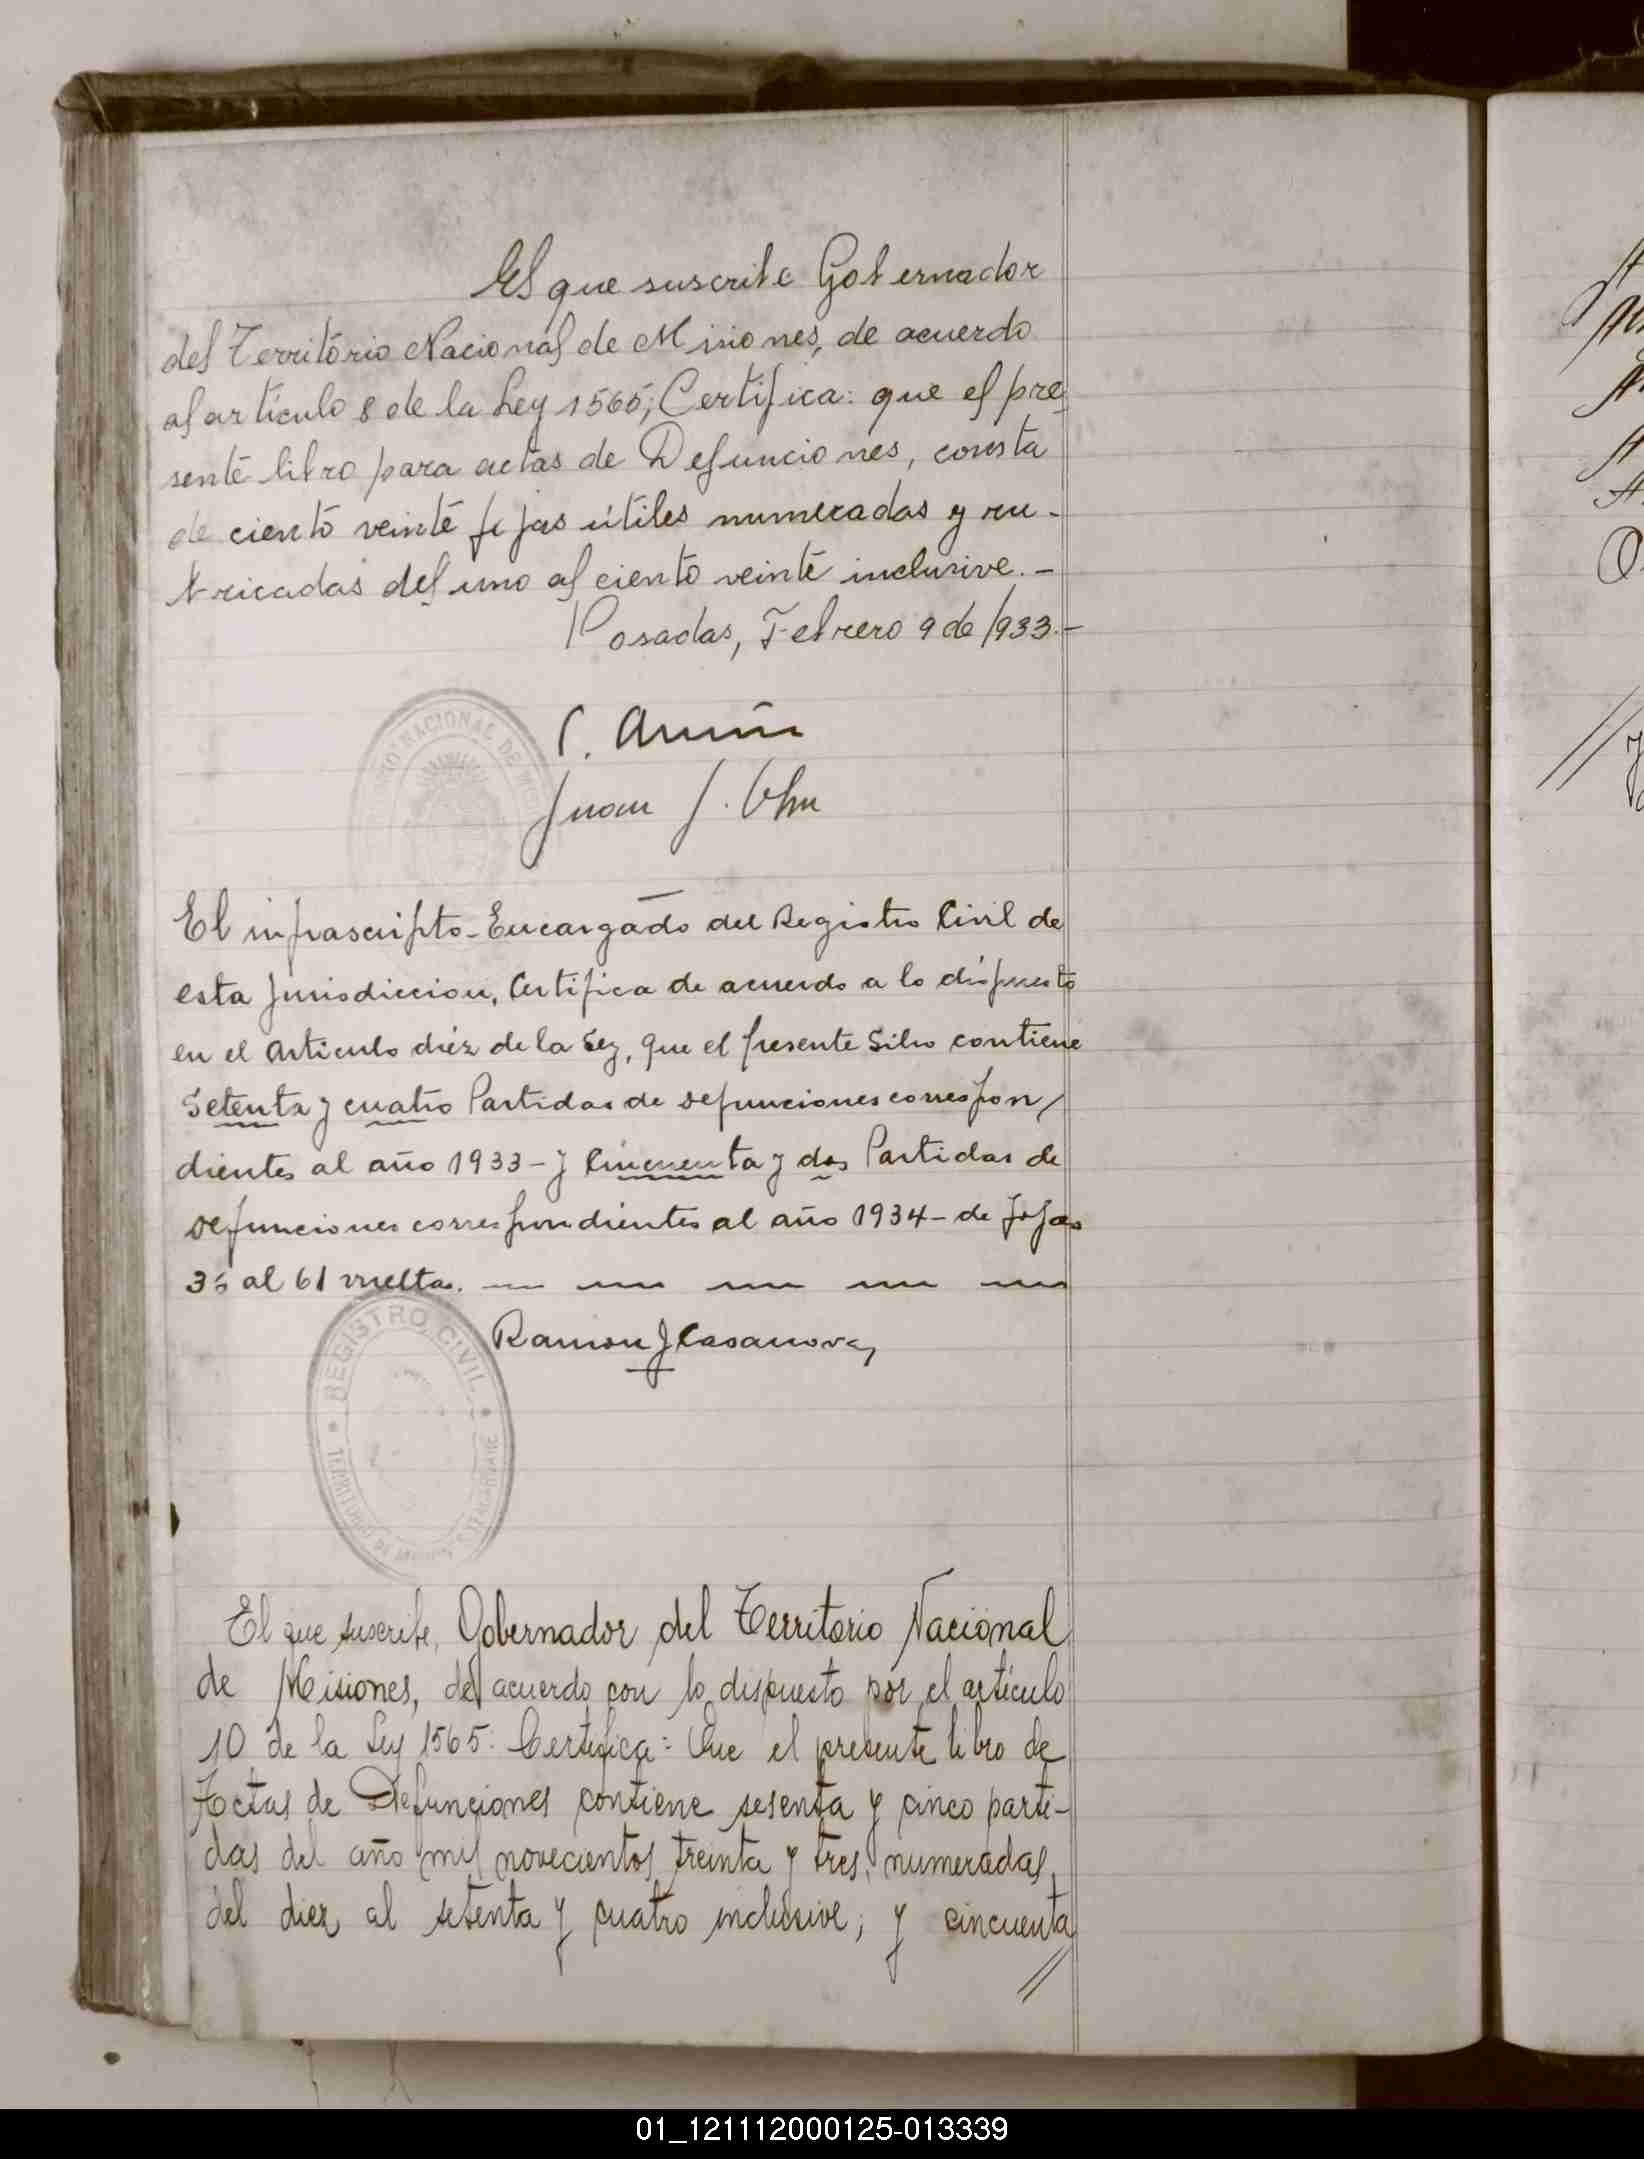 El que suscribe Gobernador
del Território Nacional de Misiones, de acuerdo
al artículo 8 de la Ley 1565; Certifica: que el pre
sente libro para actas de Defunciones, consta
de ciento veinte fojas útiles numeradas y ru-
bricadas del uno al ciento veinte inclusive.-
Posadas, Febrero 9 de 1933.-
NACIONAL DE
C.
Juan J.
El infrascripto Encargado del Registro Civil de
esta Jurisdiccion, Certifica de acuerdo a lo dispuesto
en el Articulo diéz de la Ley, que el presente Libro contiene
Setenta y cuatro Partidas de defunciones correspon/
dientes al año 1933 - y Cincuenta y dos Partidas de
defunciones correspondientes al año 1934 - de fojas
36 al 61 vuelta.
Ramon J Casanova
REGISTRO CIVIL
TERRITORIO DE
El que suscribe, Gobernador del Territorio Nacional
de Misiones, de acuerdo con lo dispuesto por el artículo
10 de la Ley 1565: Certifica: Que el presente libro de
Actas de Defunciones contiene sesenta y cinco parti-
das del año mil novecientos treinta y tres, numeradas
del diez al setenta y cuatro inclusive; y cincuenta
//
01_121112000125-013339